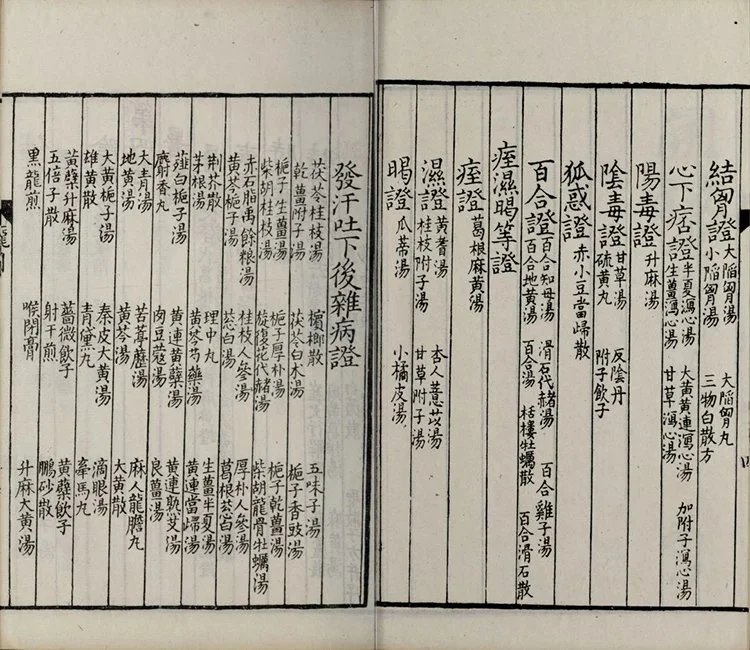 結胷證 大陷胷湯 大陷胷丸
小陷胷湯 三物白散方
心下痞證 半夏瀉心湯 大黃黃連瀉心湯 加附子瀉心湯
生薑瀉心湯 甘草瀉心湯
陽毒證 升麻湯
陰毒證 甘草湯 反陰丹
硫黃丸 附子飲子
狐惑證 赤小豆當歸散
百合證 百合知母湯 滑石代赭湯 百合雞子湯
百合地黃湯 百合湯 栝樓牡蠣散 百合滑石散
痓濕暍等證
痓證 葛根麻黃湯
濕證 黃耆湯 杏人薏苡湯
桂枝附子湯 甘草附子湯
暍證 瓜蒂湯 小橘皮湯
發汗吐下後雜病證
茯苓桂枝湯 檳榔散 五味子湯
乾薑附子湯 茯苓白朮湯 梔子香豉湯
梔子生薑湯 梔子厚朴湯 梔子乾薑湯
柴胡桂枝湯 旋復花代赭湯 柴胡龍骨牡蠣湯
赤石脂禹餘粮湯 桂枝人參湯 厚朴人參湯
黃芩梔子湯 葱白湯 葛根葱白湯
荆芥散 理中丸 生薑半夏湯
茅根湯 黃芩芍藥湯 黃連當歸湯
薤白梔子湯 黃連黃蘗湯 黃連熟艾湯
麝香丸 肉豆蔻湯 良薑湯
大青湯 苦葶藶湯 麻人龍膽丸
地黃湯 黃芩湯 大黃散
大黃梔子湯 秦皮大黃湯 滴眼湯
雄黃散 青黛丸 馬丸
黃蘗升麻湯 薔薇飲子 黃蘗飲子
五倍子散 射干煎 鵬砂散
黑龍煎 喉閉膏 升麻大黃湯